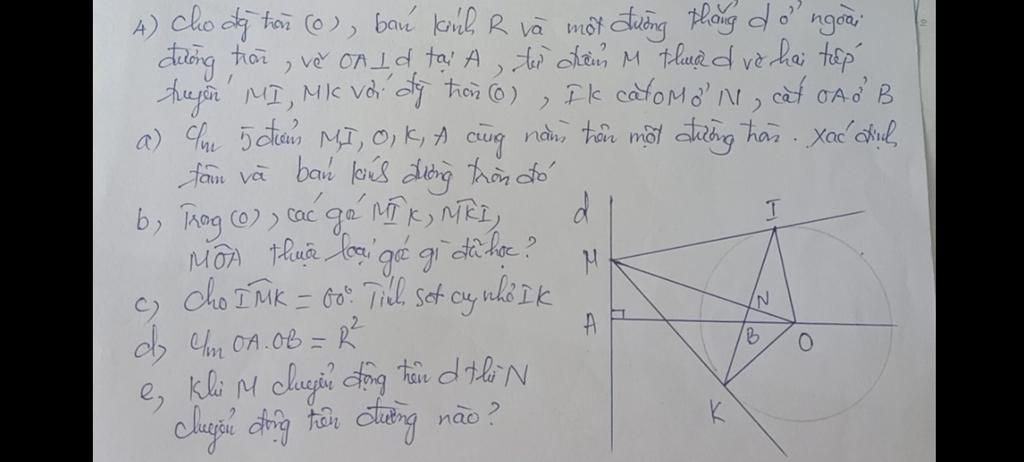 4) Cho đg tròn (O), bán kính R và một đường thẳng d ở ngoài
đường tròn, vẽ OA⊥d tại A, từ điểm M thuộc d vẽ hai tiếp
tuyến MI, MK với đg tròn (O), IK cắt OM ở N, cắt OA ở B
a) c/m 5 điểm M, I, O, K, A cùng nằm trên một đường tròn. Xác định
tâm và bán kính đường tròn đó
b, Trong (O), các góc MIK, MKI,
MOA thuộc loại góc gì đã học?
c, Cho IMK = 60°. Tính sđt cg nhỏ IK
d, c/m OA.OB = R²
e, Khi M chuyển động trên d thì N
chuyển động trên đường nào?
d
I
M
N
A
B
O
K